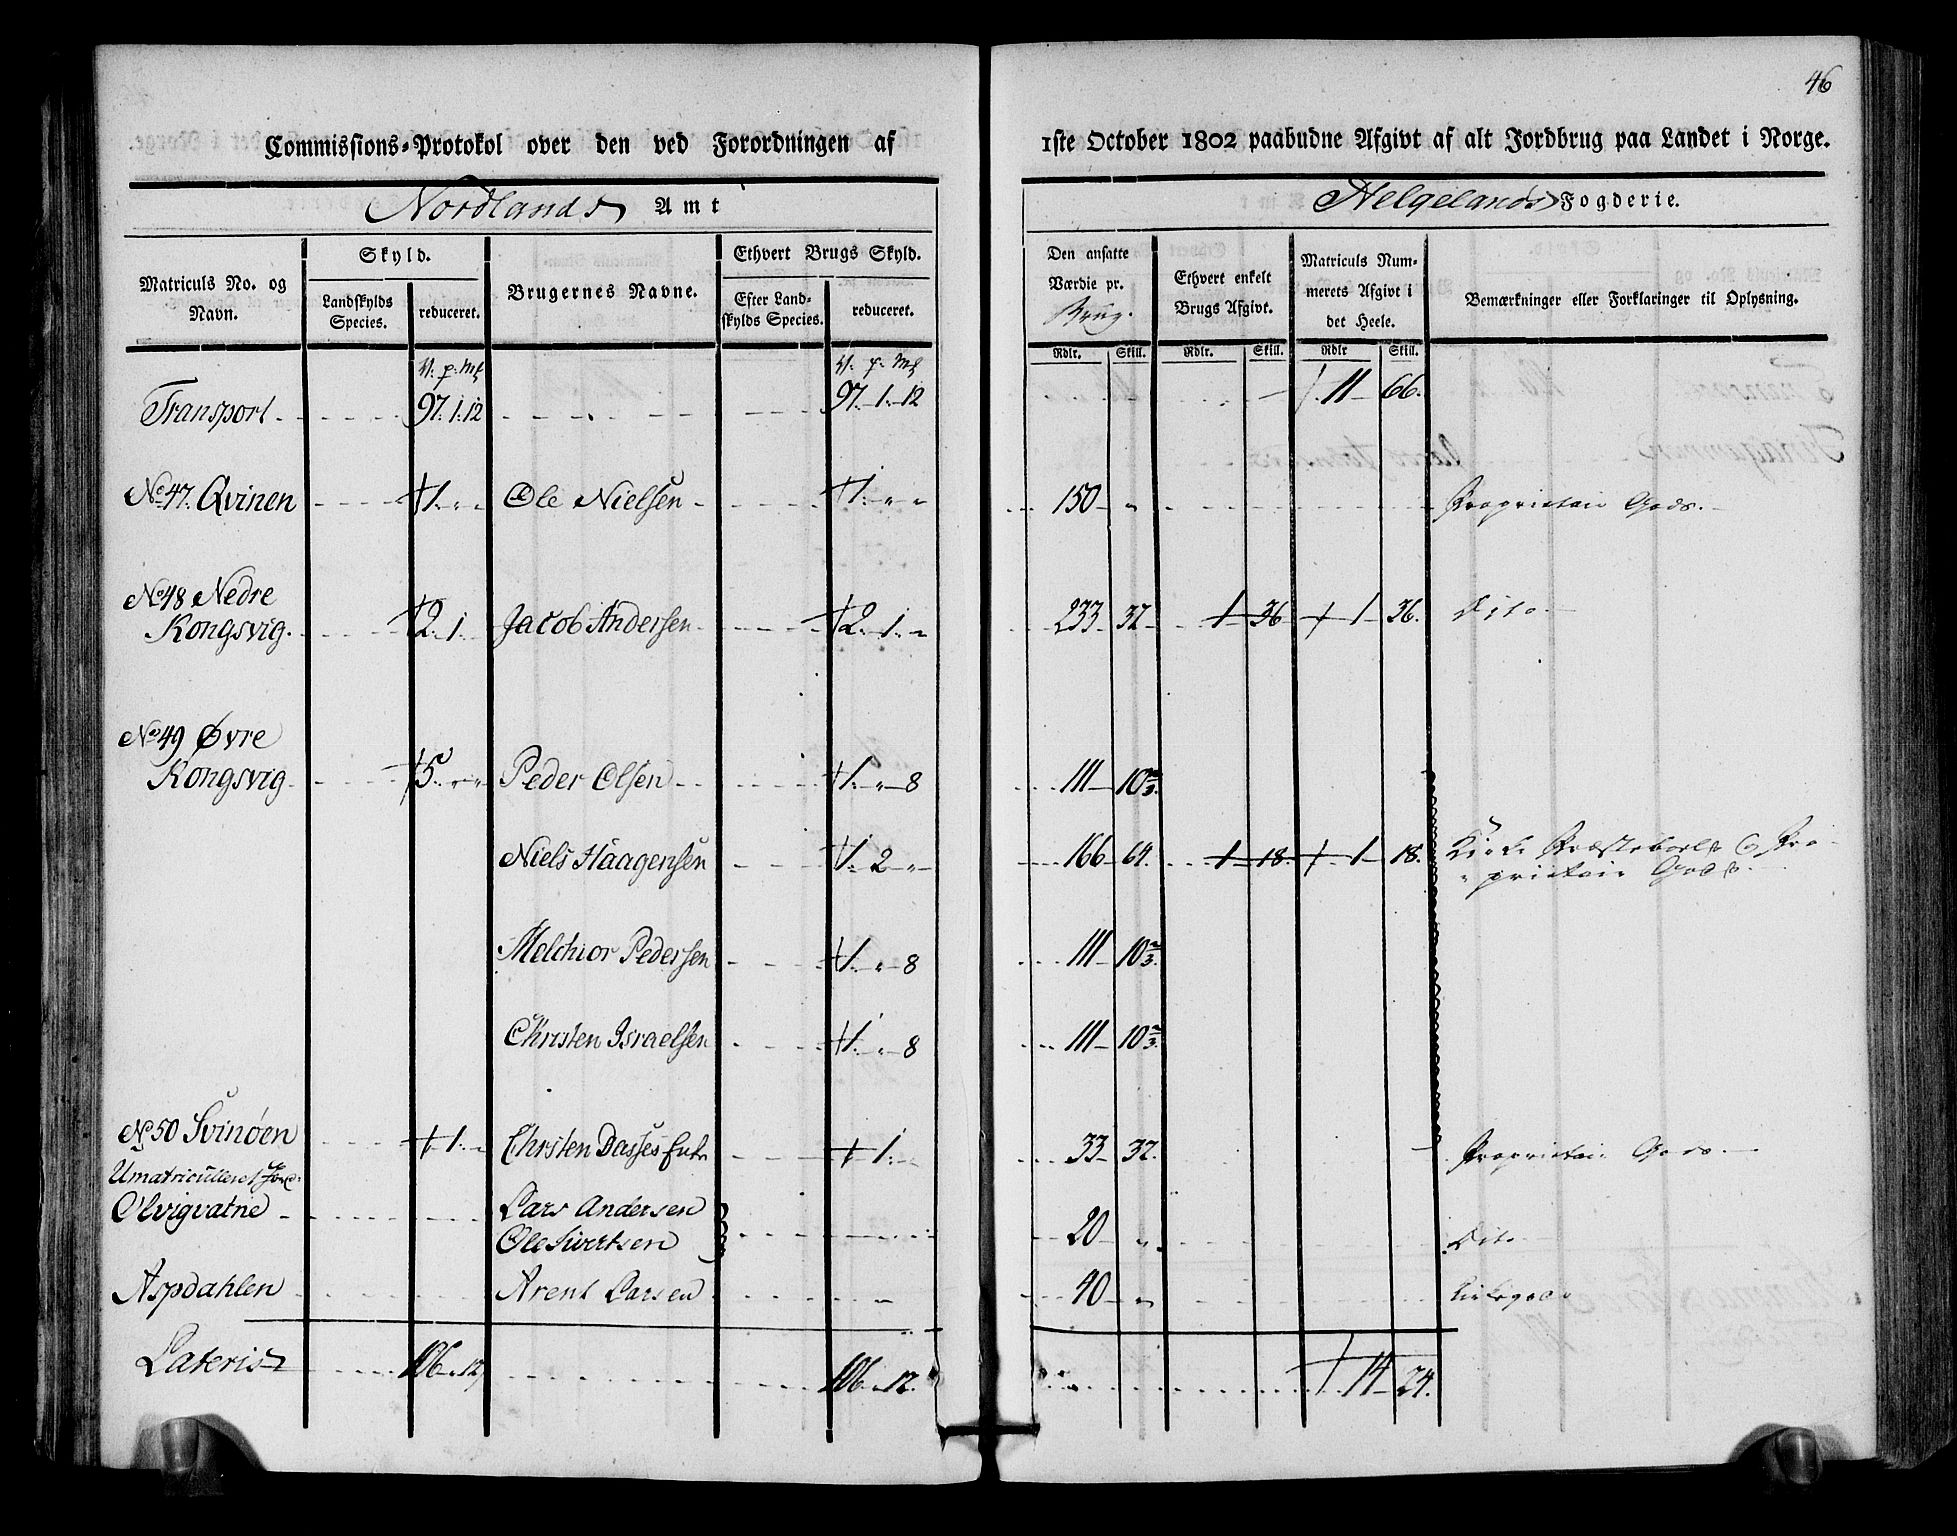 46
Commissions-Protokol over den ved Forordningen af 1ste October 1802 paabudne Afgivt af alt Jordbrug paa Landet i Norge.
Nordlands Amt Helgelands Fogderie.
Matriculs No. og Navn.
Skyld.
Landskylds Species.
reduceret.
Brugernes Navne.
Ethvert Brugs Skyld.
Efter Landskylds Species.
reduceret.
Den ansatte Værdie pr. Brug.
Ethvert enkelt Brugs Afgivt.
Matriculs Nummerets Afgivt i det Heele.
Bemærkninger eller Forklaringer til Oplysning.
Rdlr. Skill. Rdlr. Skill. Rdlr Skill.
V. p. Mk V. p. Mk
Transport 97. 1. 12 97. 1. 12 11 66.
No 47. Qvinen 1. " " Ole Nielsen 1. " " 150 " Proprietair Gods.
No 48 Nedre
Kongsvig. 2. 1. Jacob Andersen 2. 1. " 233 32 1 36 1 36. Dito
No 49 Øvre
Kongsvig 5. " " Peder Olsen 1. " 8 111 10 2/3.
Niels Haagensen 1. 2 " 166 64. 1 18. 1 18. Kirke Præstebols & Pro-
prietair Gods.
Melchior Pedersen 1. " 8 111 10 2/3.
Christen Israelsen 1. " 8 111 10 2/3.
No 50 Svinøen 1. Chrsten Dasses Enke 1. 33 32. Proprietair Gods.
Umatriculleret Jord:
Olvigvatne Lars Andersen
Ole Sivertsen 20 " Dito
Aspdahlen Arent Larsen " 40 "
Lateris 106 " 12 106 " 12. 14 24.